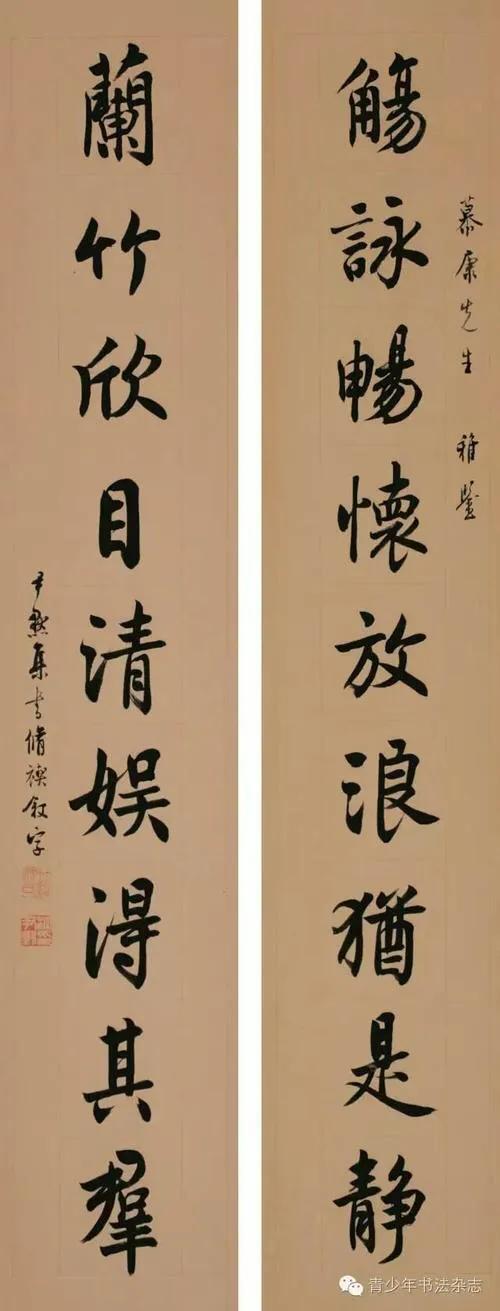 慕康先生 雅鑒
觴詠暢懷放浪猶是静
蘭竹欣目清娱得其羣
尹默集書脩禊叙字
青少年书法杂志